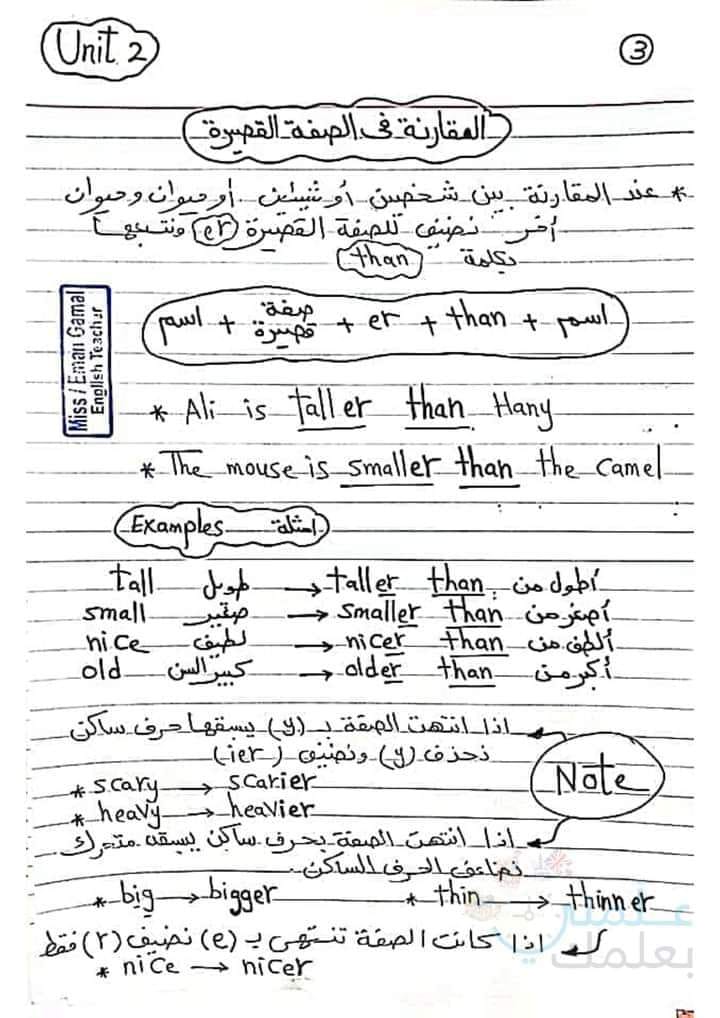 Unit 2
3
المقارنة فى الصفة القصيرة
* عند المقارنة بين شخصين أو شيئين أو حيوان وحيوان
أخر نضيف للصفة القصيرة (er) ونتبعها
بكلمة (than)
اسم + صفة قصيرة + er + than + اسم
Miss / Eman Gamal
English Teacher
* Ali is taller than Hany
* The mouse is smaller than the camel
Examples امثلة
tall طويل → taller than أطول من
small صغير → smaller than أصغر من
nice لطيف → nicer than ألطف من
old كبير السن → older than أكبر من
Note
اذا انتهت الصفة بـ (y) يسبقها حرف ساكن
نحذف (y) ونضيف (ier)
* scary → scarier
* heavy → heavier
اذا انتهت الصفة بحرف ساكن يسبقه متحرك
نضاعف الحرف الساكن.
* big → bigger * thin → thinner
اذا كانت الصفة تنتهى بـ (e) نضيف (r) فقط
* nice → nicer
علمني
بعلمك